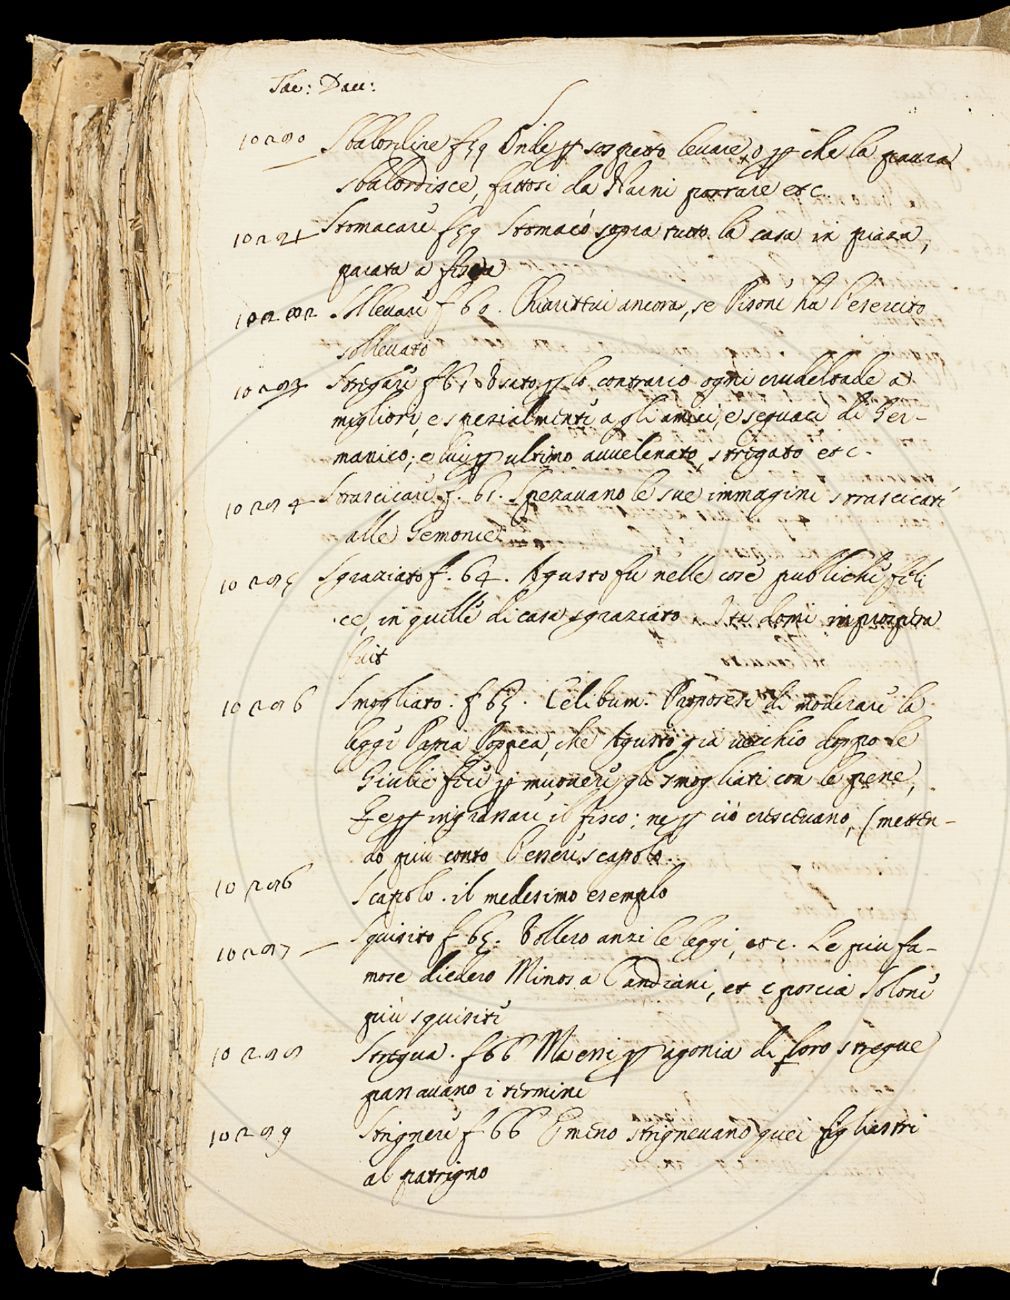 Tac: Dau:
S
10290 Sbalordire f 59 Onde p sospetto levare, o p che la paura
sbalordisce, fattosi da Marini portare etc.
10291 Stomacare f 59 Stomacò sopra tutto la casa in piazza,
parata a festa
10292 Sollevare f 60. Chiaritevi ancora, se Pisone ha l'esercito
sollevato
10293 Stregare f 61 Usato p lo contrario ogni crudeltade a
migliori, e spezialmente a gli amici, e seguaci di Ger-
manico; e lui p ultimo avvelenato, stregato etc.
10294 Strascicare f. 61. Speravano le sue immagini strascicati
alle Gemonie
10295 Sgraziato f. 64. Agusto fu nelle cose publiche feli
ce, in quelle di casa sgraziato. domi improspera
fuit
10296 Smogliato. f 65. Celibum. Proposesi di moderare la
legge Papia Poppea, che Agusto già vecchio doppo le
Giulie fece p muovere gli smogliati con le pene,
e p ingrassare il fisco; ne p ciò crescevano, (metten-
do più conto l'essere scapolo.
10296 Scapolo. il medesimo esemplo
10297 Squisito f 65. Vollero anzi le leggi, etc. Le più fa-
mose diedero Minos a Candiani, et e poscia Solone
più squisite
10298 Stregua. f 66 Ma essi p agonia di loro stregue
passavano i termini
10299 Strignere f 66 E meno strignevano quei figliastri
al patrigno